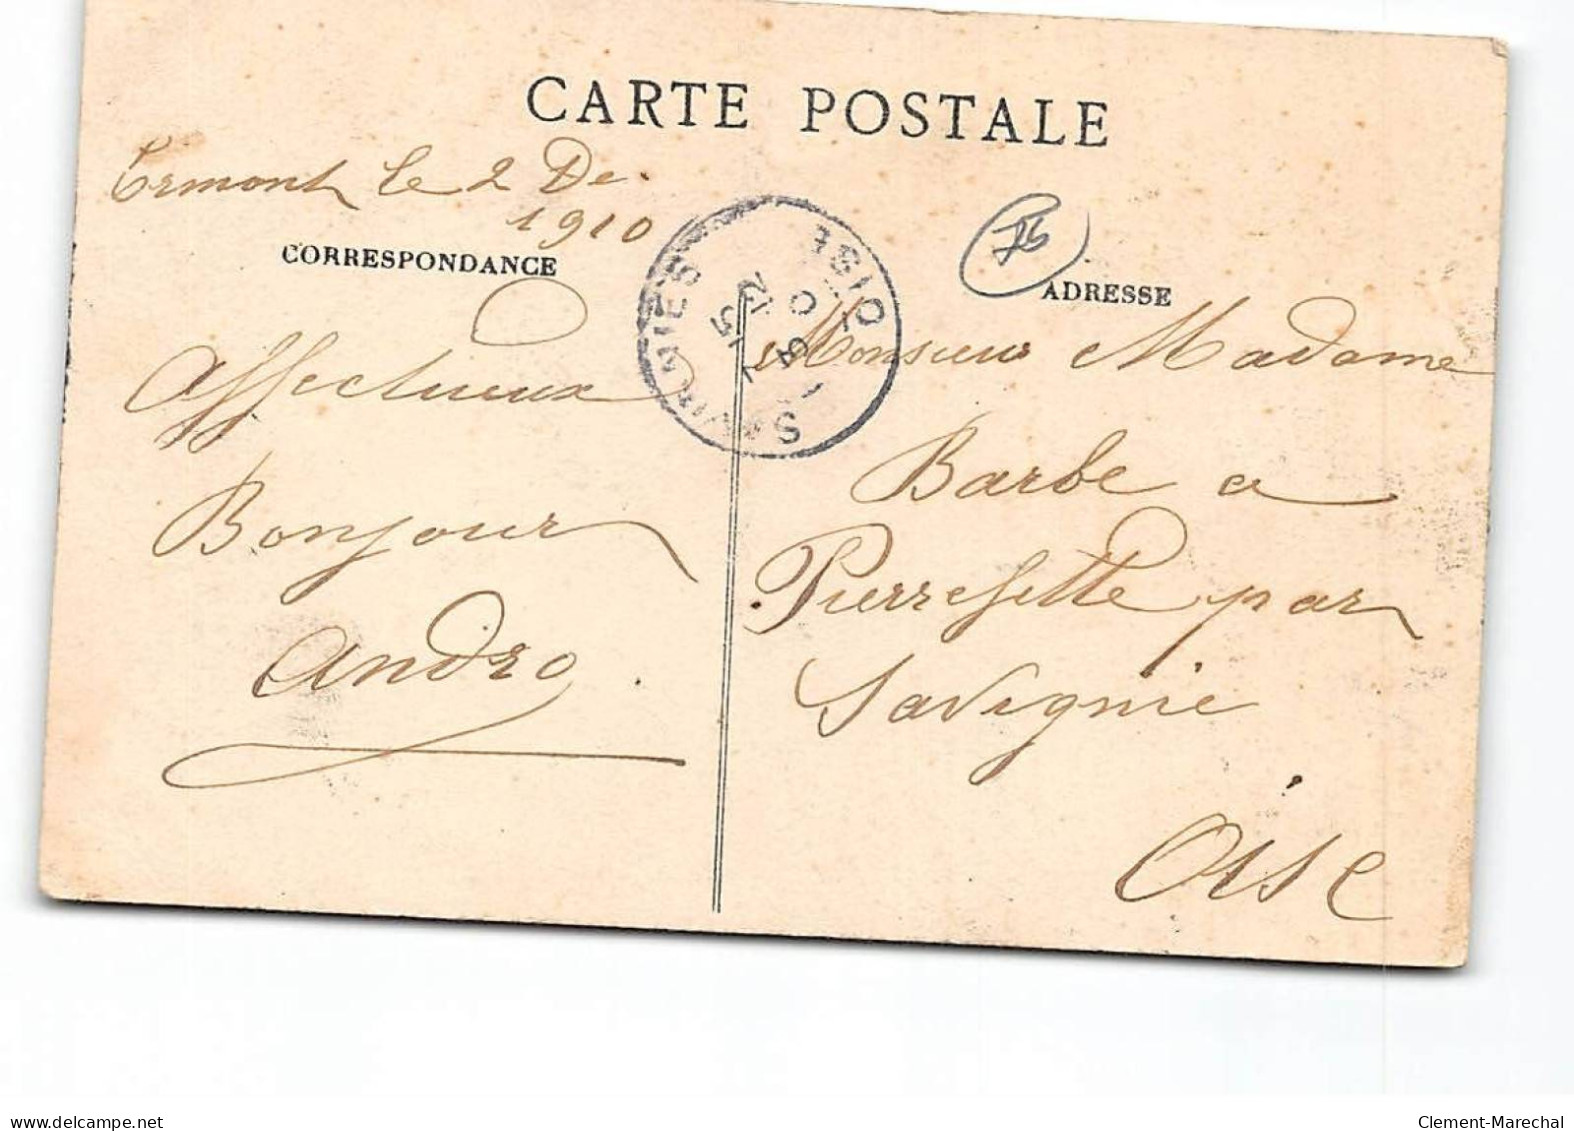 CARTE POSTALE
Ermont le 2 De.
1910
CORRESPONDANCE
ADRESSE
SAVIGNIES
OISE
Affectueux
Bonjour
André
Monsieur Madame
Barbe a
Pierrefitte par
Savignie
Oise
delcampe.net
Clement-Marechal